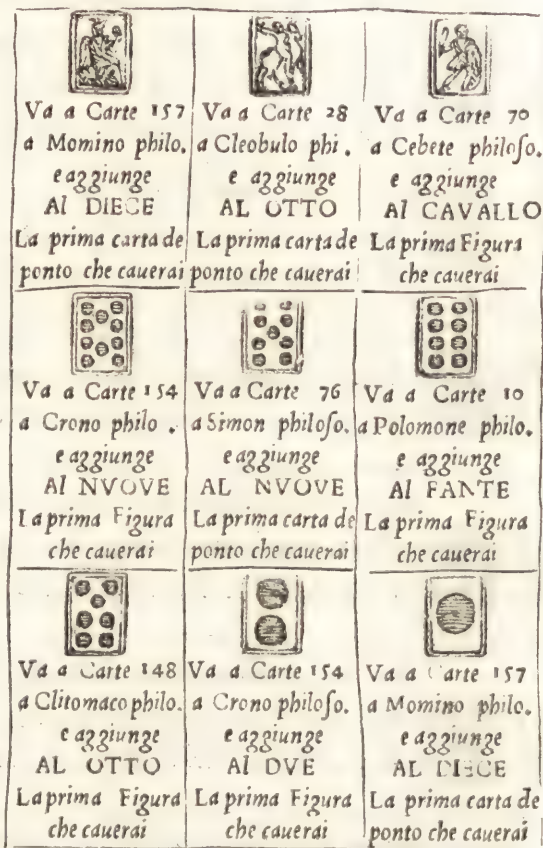 Va a Carte 157
a Momino philo.
e aggiunge
Al DIECE
La prima carta de
ponto che cauerai
Va a Carte 28
a Cleobulo phi.
e aggiunge
AL OTTO
La prima carta de
ponto che cauerai
Va a Carte 70
a Cebete philoso.
e aggiunge
Al CAVALLO
La prima Figura
che cauerai
Va a Carte 154
a Crono philo.
e aggiunge
Al NVOVE
La prima Figura
che cauerai
Va a Carte 76
a Simon philoso.
e aggiunge
AL NVOVE
La prima carta de
ponto che cauerai
Va a Carte 10
a Polomone philo.
e aggiunge
Al FANTE
La prima Figura
che cauerai
Va a Carte 148
a Clitomaco philo.
e aggiunge
AL OTTO
La prima Figura
che cauerai
Va a Carte 154
a Crono philoso.
e aggiunge
Al DVE
La prima Figura
che cauerai
Va a Carte 157
a Momino philo.
e aggiunge
AL DIECE
La prima carta de
ponto che cauerai